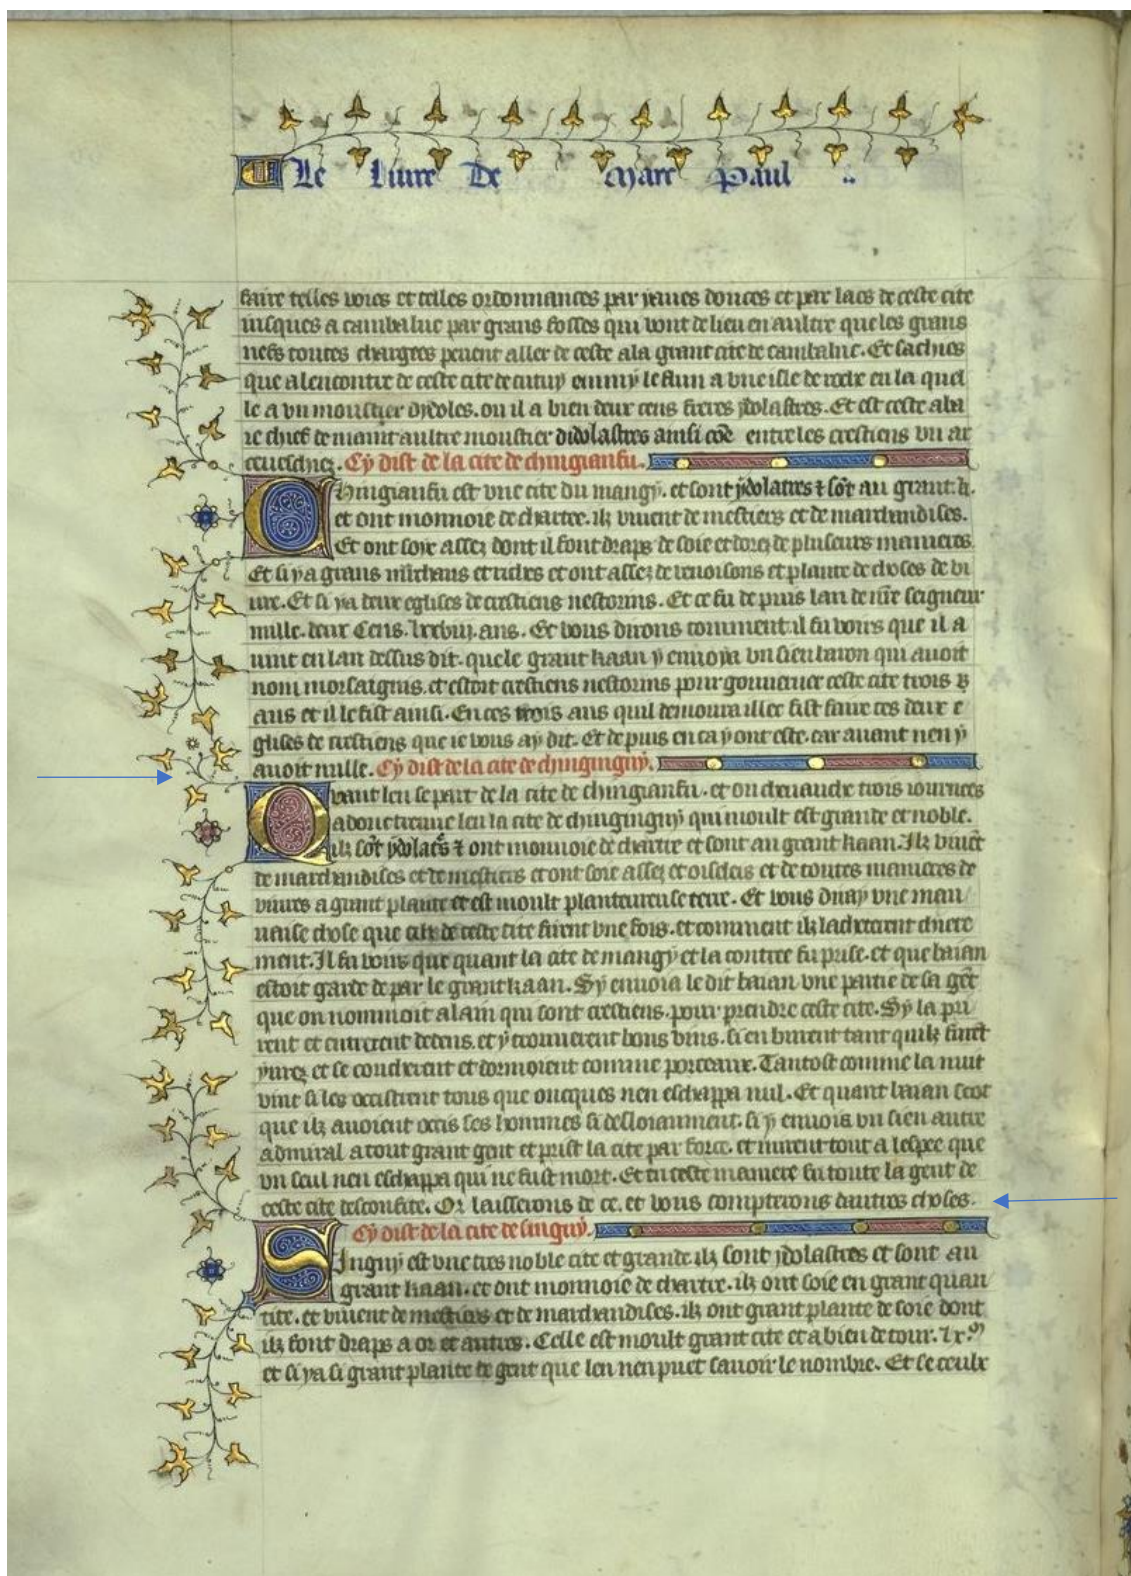 Le Liure De Marc Paul
faire telles voies et telles ordonnances par yaues douces et par lacs de ceste cite
iusques a cambaluc par grans fosses qui vont de lieu en aultre que les grans
nefs toutes chargees peuent aller de ceste a la grant cite de cambaluc. Et sachies
que alencontre de ceste cite de cuiuy emmy le flun a vne isle de roche en la quel
le a vn moustier dydoles. ou il a bien deux cens freres ydolastres. Et est ceste aba
ie chief de maint aultre moustier didolastres ainsi cōe entre les crestiens vn ar
ceueschiez. Cy dist de la cite de chingianfu.
Chingianfu est vne cite du mangy. et sont ydolatres ⁊ sōt au grant. k.
et ont monnoie de chartre. ilz viuent de mestiers et de marchandises.
Et ont soye assez dont il font draps de soie et dorez de pluseurs manieres.
Et si ya grans mārchans et riches et ont assez de venoisons et plante de choses de vi
ure. Et si ya deux eglises de crestiens nestorins. Et ce fu de puis lan de nr̄e seigneur
mille. deux Cens. lxxviij. ans. Et vous dirons comment il fu voirs que il a
uint en lan dessus dit. que le grant kaan y enuoya vn sien baron qui auoit
nom morsargins. et estoit crestiens nestorins pour gouuerner ceste cite trois
ans et il le fist ainsi. En ces trois ans quil demoura illec fist faire ces deux e
glises de crestiens que ie vous ay dit. Et de puis en ca y ont este. car auant nen y
auoit nulle. Cy dist de la cite de chinginguy.
Quant len se part de la cite de chingianfu. et on cheuauche trois iournees
adonc treuue len la cite de chinginguy qui moult est grande et noble.
ilz sōt ydolatr̄s ⁊ ont monnoie de chartre et sont au grant kaan. Ilz viuēt
de marchandises et de mestiers et ont soie assez et oiseleis et de toutes manieres de
viures a grant plante et est moult planteureuse terre. Et vous diray vne mau
uaise chose que cilz de ceste cite firent vne fois. et comment ilz lacheterent chiere
ment. Il fu voirs que quant la cite de mangy et la contree fu prise. et que baian
estoit garde de par le grant kaan. Sy enuoia le dit baian vne partie de sa gēt
que on nommoit alain qui sont crestiens. pour prendre ceste cite. Sy la pri
rent et entrerent dedens. et y trouuerent bons vins. si en burent tant quilz furēt
yures et se coucherent et dormoient comme porceaux. Tantost comme la nuit
vint si les occistrent tous que oncques nen eschappa nul. Et quant baian scot
que ilz auoient occis ses hommes si desloiaument. si y enuoia vn sien autre
admiral a tout grant gent et prist la cite par force. et mirent tout a lespee que
vn seul nen eschappa qui ne fust mort. Et en ceste maniere fu toute la gent de
ceste cite desconfite. Or laisserons de ce. et vous compterons dautres choses.
Cy dist de la cite de singuy.
Singuy est vne tres noble cite et grande. ilz sont ydolastres et sont au
grant kaan. et ont monnoie de chartre. ilz ont soie en grant quan
tite. et viuent de mestiers et de marchandises. ilz ont grant plante de soie dont
ilz font draps a or et autres. Celle est moult grant cite et a bien de tour. lx.
et si ya si grant plante de gent que len nen puet sauoir le nombre. Et se ceulx